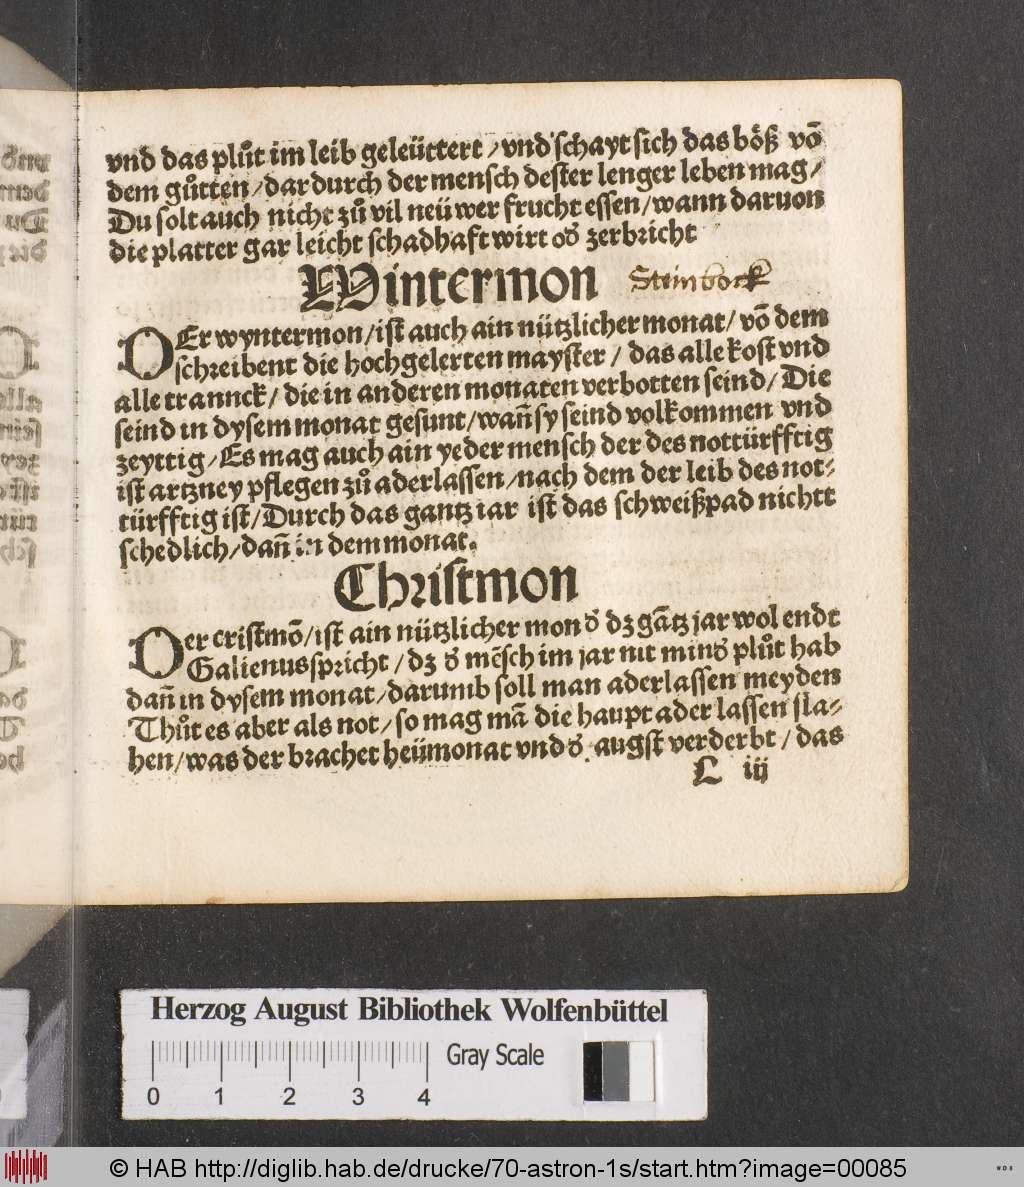 vnd das plůt im leib geleüttert / vnd schayt sich das böß võ
dem gůtten / dardurch der mensch dester lenger leben mag /
Du solt auch nicht zů vil neüwer frucht essen / wann daruon
die platter gar leicht schadhaft wirt oď zerbricht
Wintermon
Steinbock
DEr wyntermon / ist auch ain nützlicher monat / võ dem
schreibent die hochgelerten mayster / das alle kost vnd
alle trannck / die in anderen monaten verbotten seind / Die
seind in dysem monat gesunt / wañ sy seind volkommen vnd
zeyttig / Es mag auch ain yeder mensch der des nottürfftig
ist artzney pflegen zů aderlassen / nach dem der leib des not⸗
türfftig ist / Durch das gantz iar ist das schweißpad nichtt
schedlich / dañ in dem monat.
Christmon
Der cristmõ / ist ain nützlicher mon ď dz gãtz jar wol endt
Galienus spricht / dz ď mẽsch im jar nit minď plůt hab
dañ in dysem monat / darumb soll man aderlassen meyden
Thůt es aber als not / so mag mã die haupt ader lassen sla⸗
hen / was der brachet heümonat vnd ď augst verderbt / das
L iij
Herzog August Bibliothek Wolfenbüttel
Gray Scale
0 1 2 3 4
© HAB http://diglib.hab.de/drucke/70-astron-1s/start.htm?image=00085